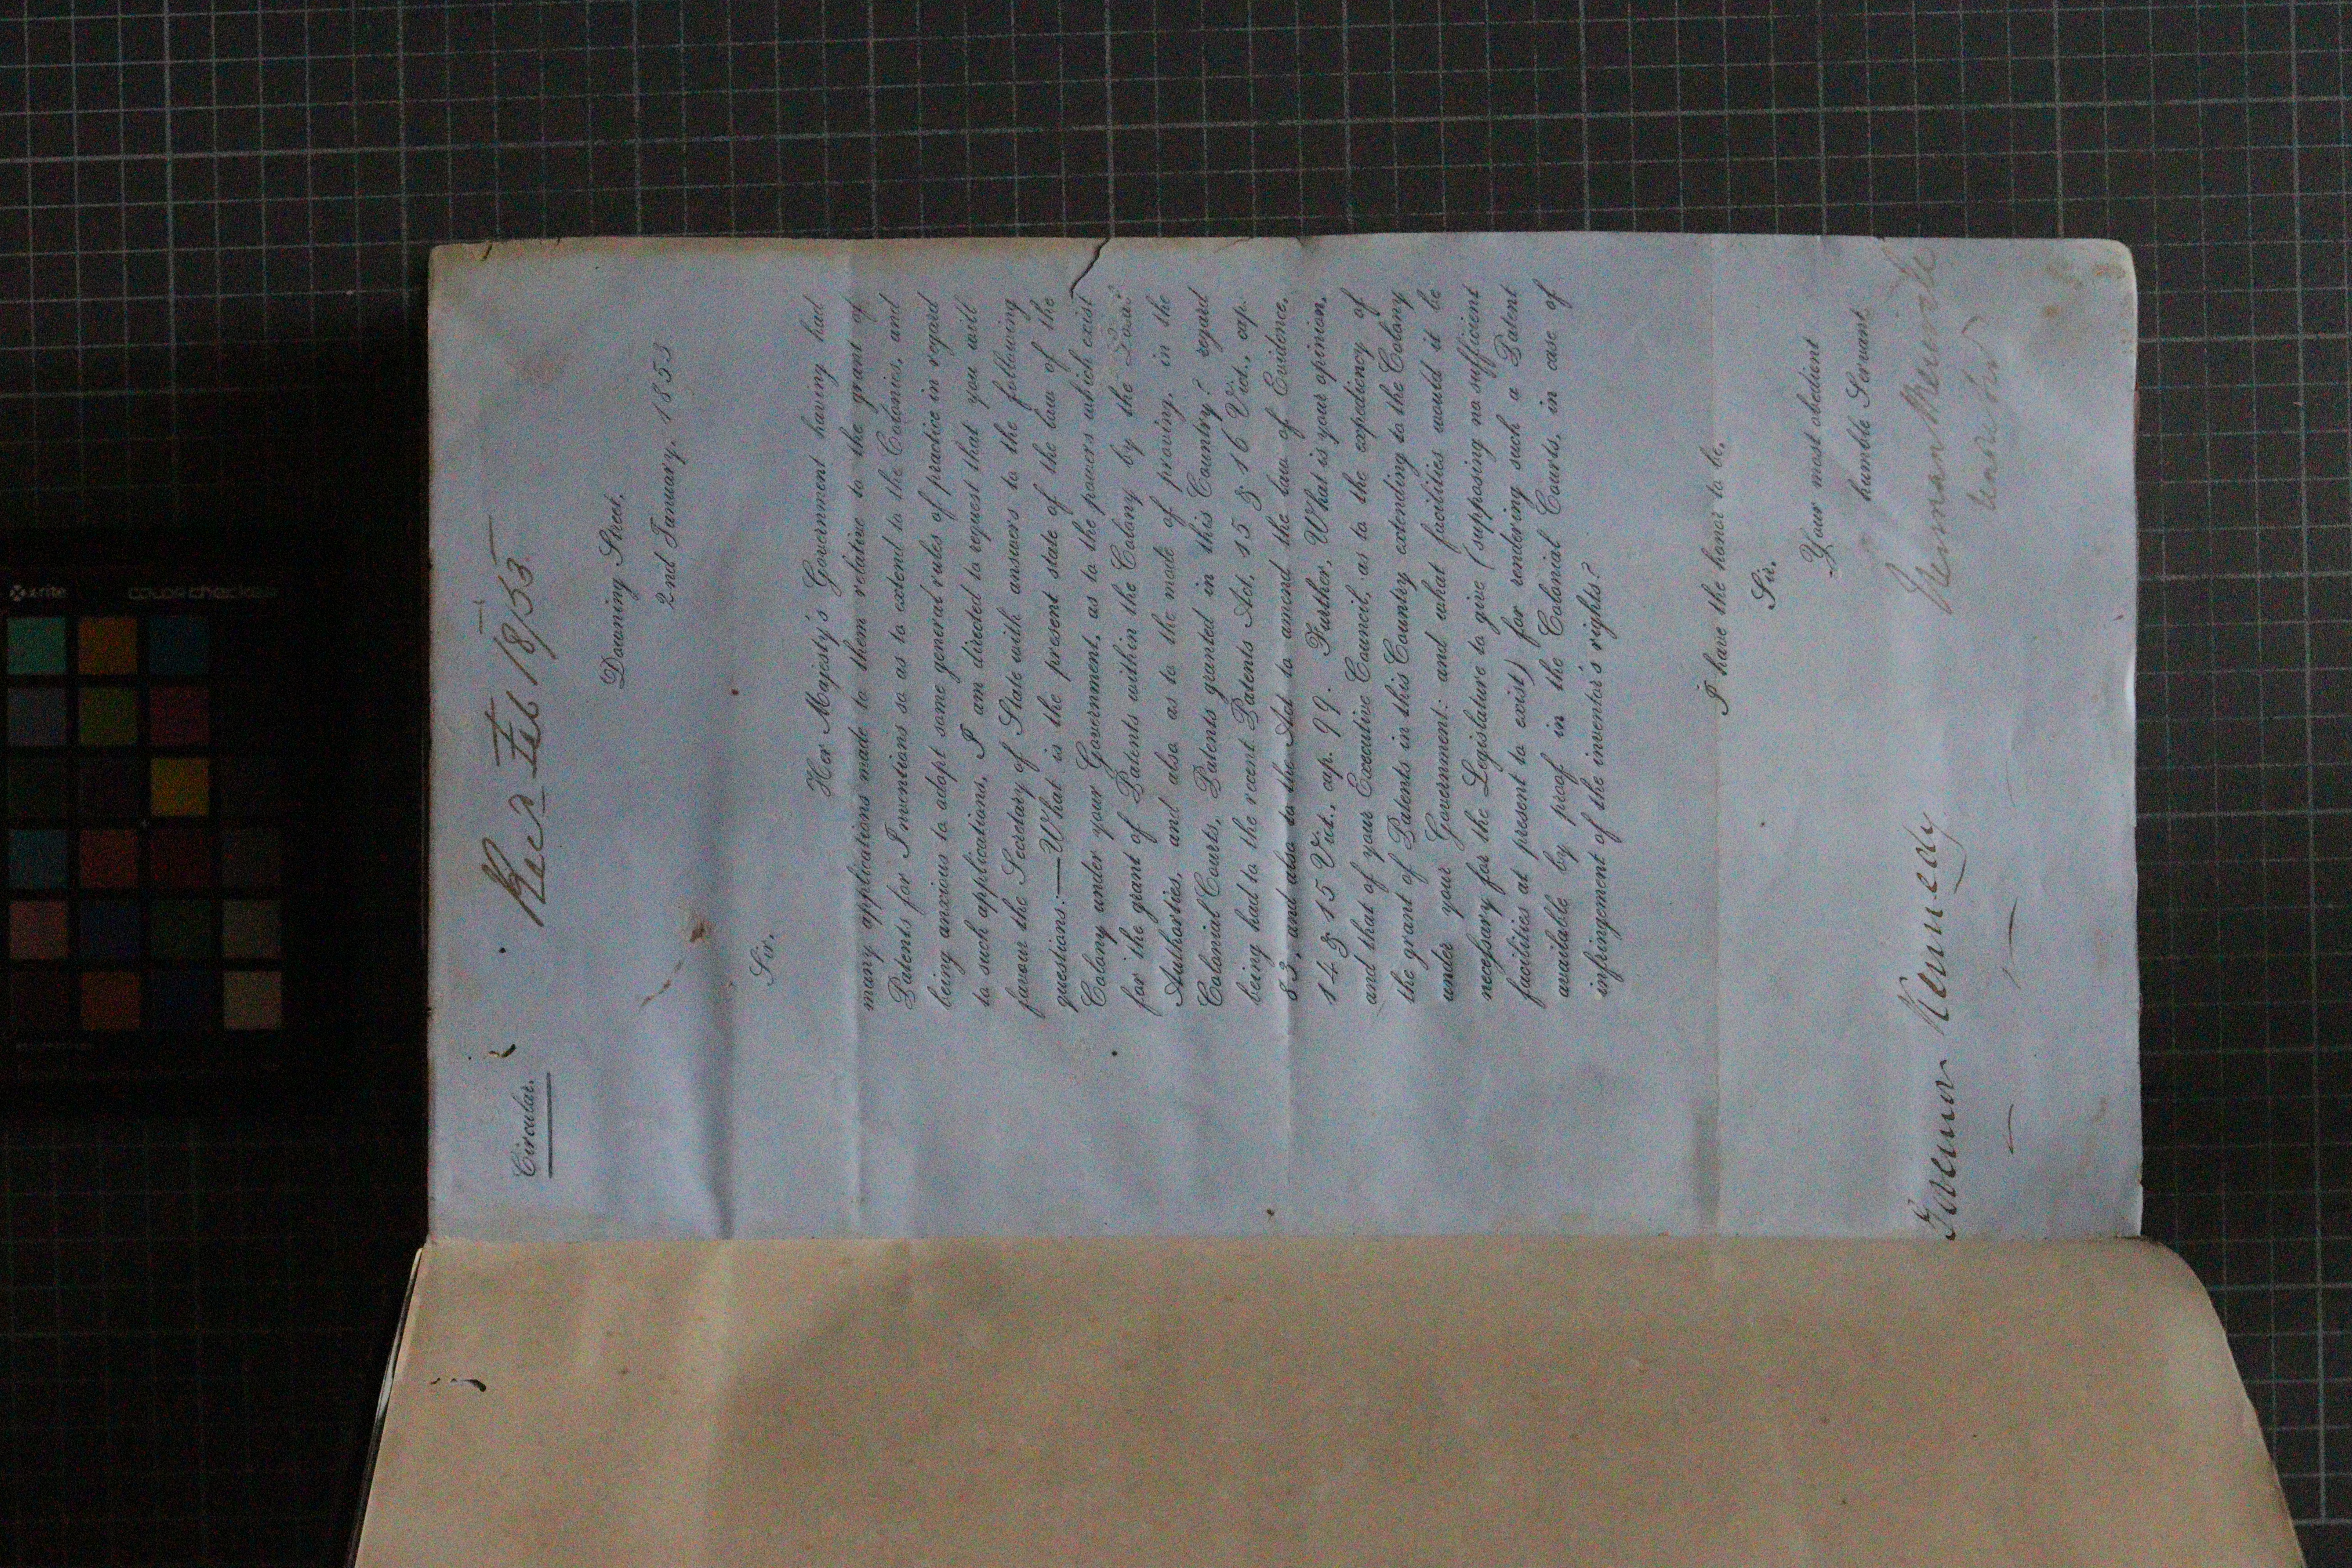 Circular.
Recd Feb 18/53
Downing Street,
2nd January, 1853
Sir,
Her Majesty's Government having had
many applications made to them relative to the grant of
Patents for Inventions so as to extend to the Colonies, and
being anxious to adopt some general rules of practice in regard
to such applications, I am directed to request that you will
favour the Secretary of State with answers to the following
questions:—What is the present state of the law of the
Colony under your Government, as to the powers which exist
for the grant of Patents within the Colony by the Local
Authorties, and also as to the mode of proving, in the
Colonial Courts, Patents granted in this Country? regard
being had to the recent Patents Act, 15 & 16 Vict., cap.
83, and also to the Act to amend the law of Evidence,
14 & 15 Vict., cap. 99. Further, What is your opinion,
and that of your Executive Council, as to the expediency of
the grant of Patents in this Country extending to the Colony
under your Government: and what facilities would it be
necessary for the Legislature to give (supposing no sufficient
facilities at present to exist) for rendering such a Patent
available by proof in the Colonial Courts, in case of
infringement of the inventor's rights?
I have the honor to be,
Sir,
Your most obedient
humble Servant
Herman Merivale
Governor Kennedy
x-rite colorchecker